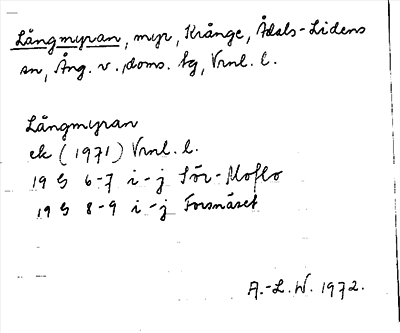 Långmyran, myr, Krånge, Ådals-Lidens
sn, Ång. v. doms. tg, Vrnl. l.
Långmyran
ek (1971) Vrnl. l.
19 G 6-7 i-j Sör-Moflo
19 G 8-9 i-j Forsnäset
A.-L. W. 1972.